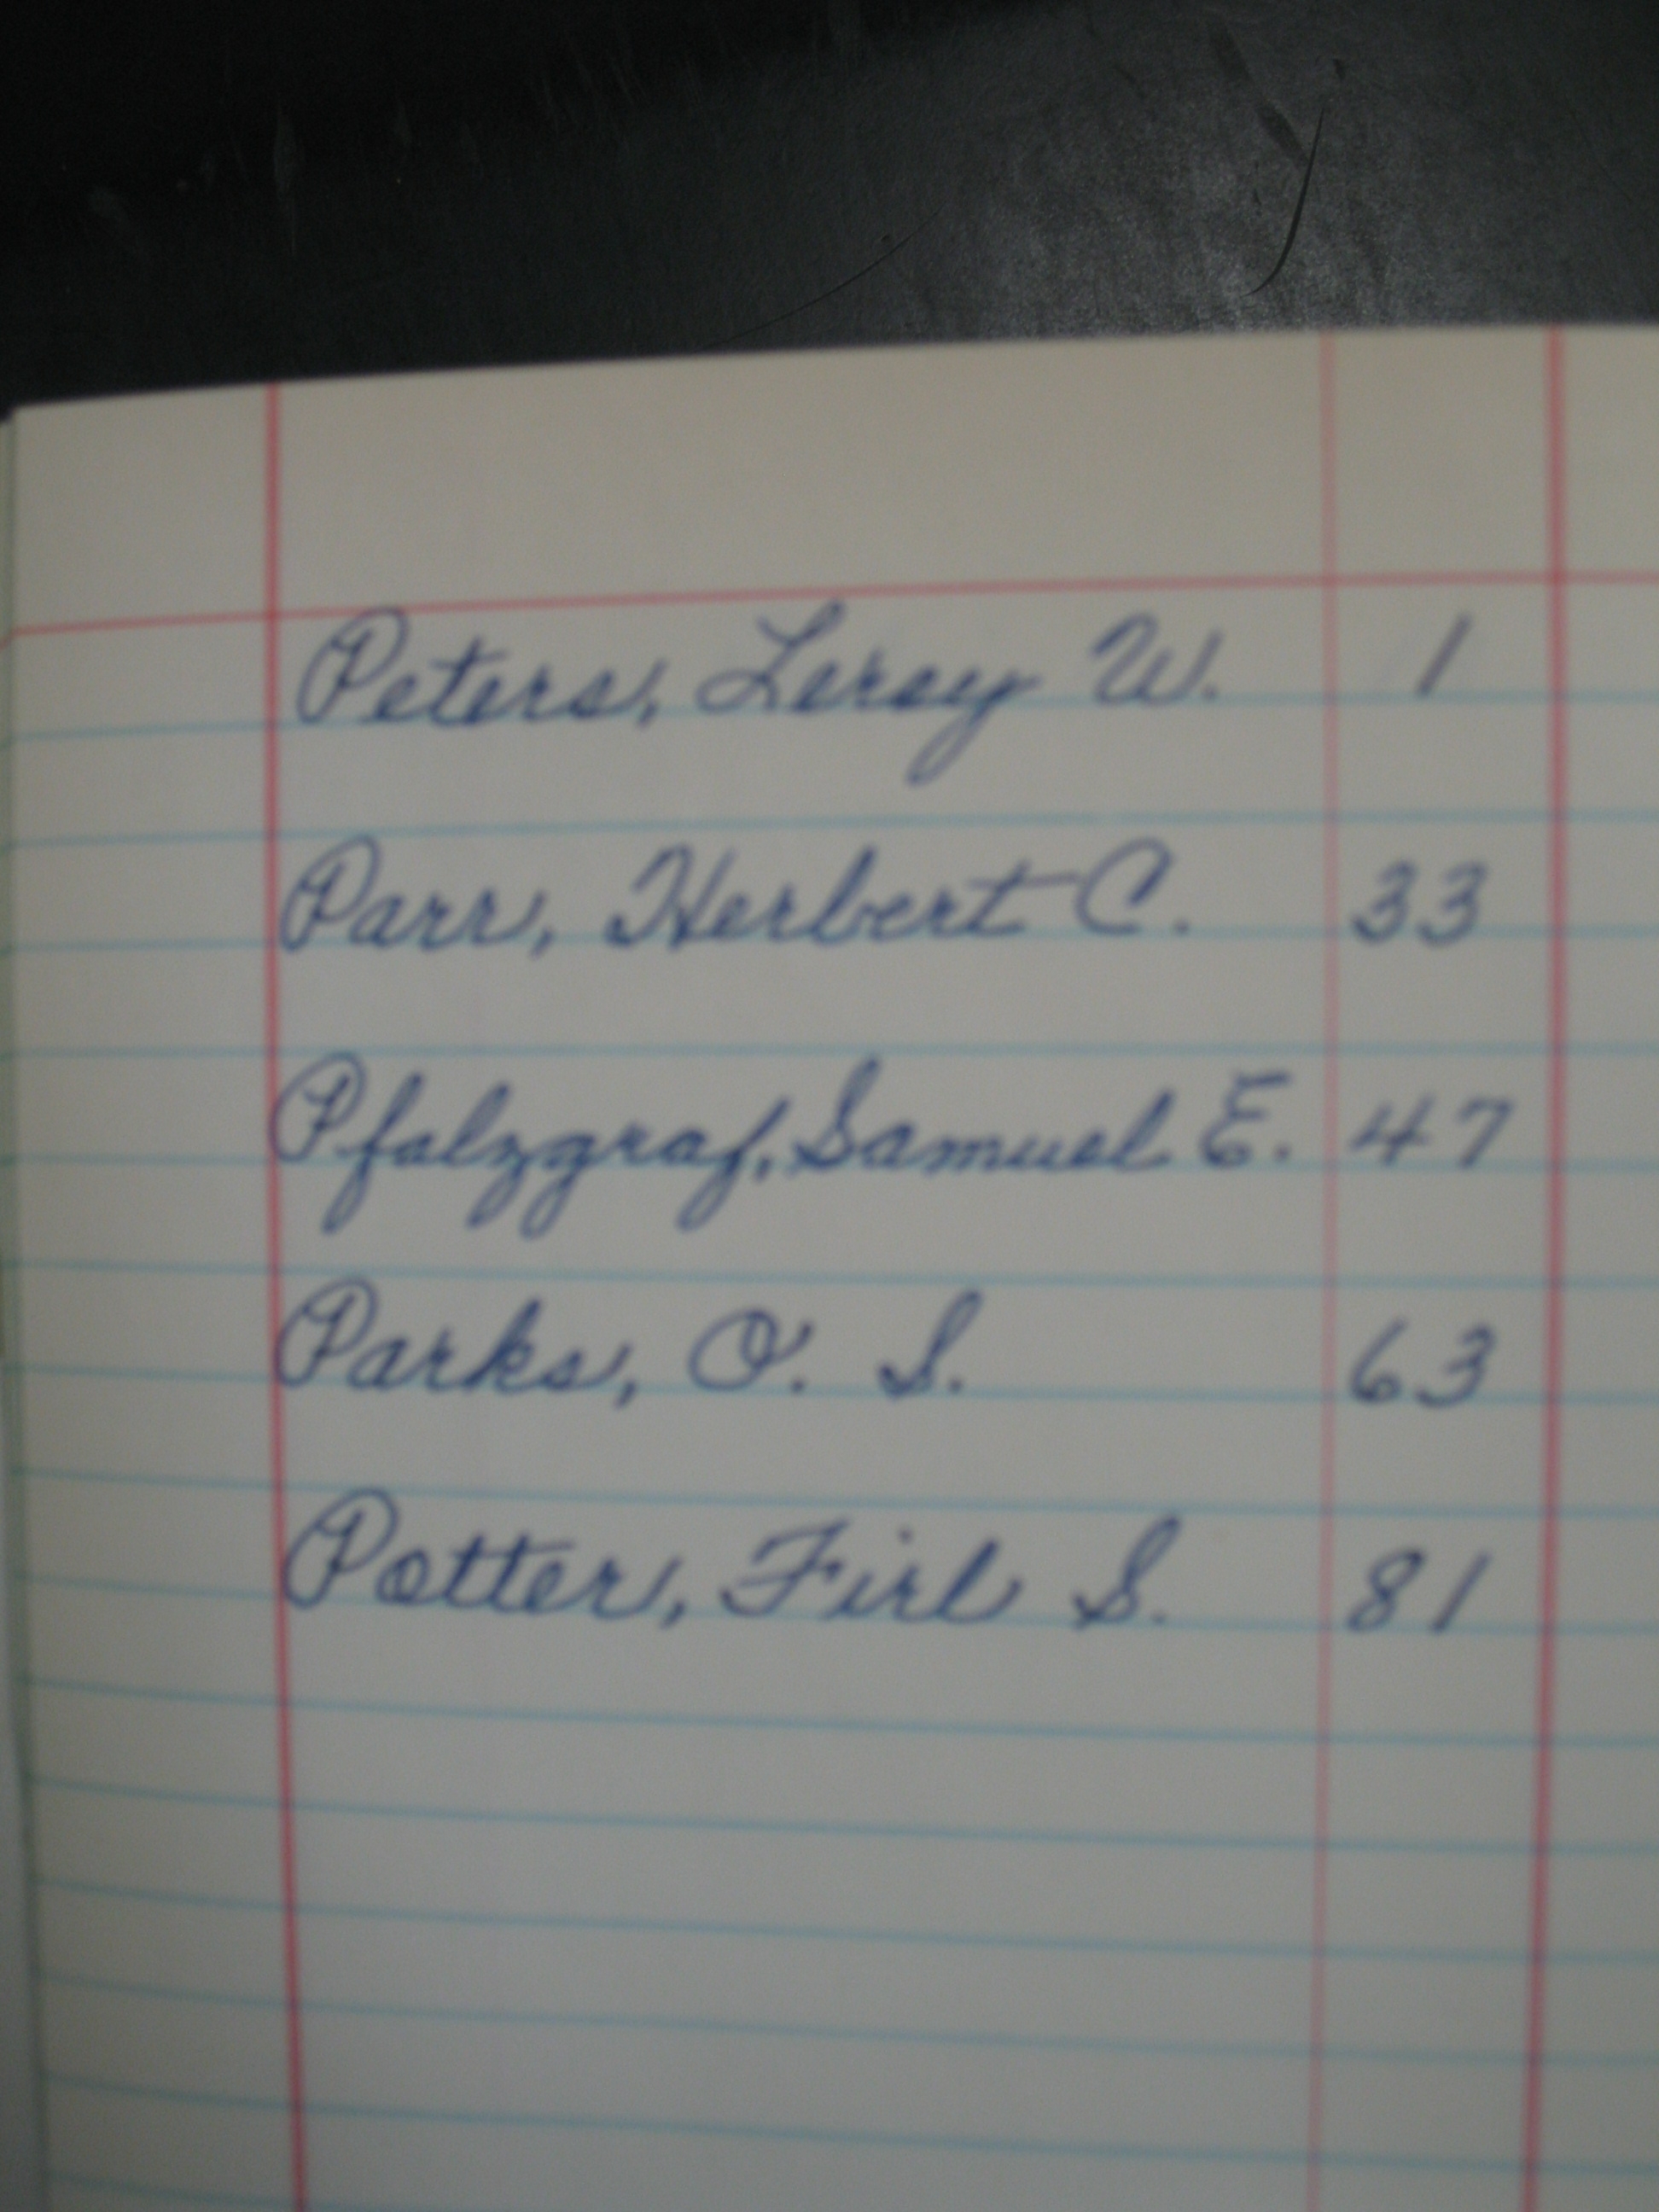 Peters, Leroy W. 1
Parr, Herbert C. 33
Pfalzgraf, Samuel E. 47
Parks, O. S. 63
Potter, Firl S. 81